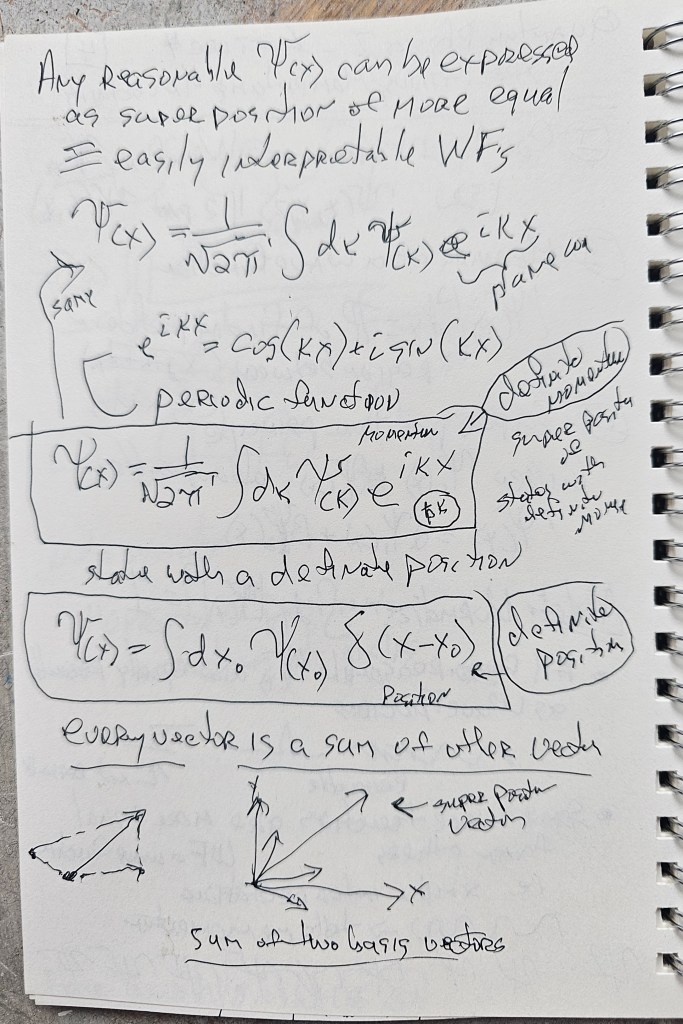 Any reasonable Ψ(x) can be expressed
as superposition of more equal
I easily interpretable WFs
Ψ(x) = 1/√2π ∫ dk Ψ(k) e^ikx
plane
same
e^ikx = cos(kx) + i sin(kx)
periodic function
definite
momentum
momentum
Ψ(x) = 1/√2π ∫ dk Ψ(k) e^ikx
ħk
super
of
states with
definite
state with a definate position
Ψ(x) = ∫ dx₀ Ψ(x₀) δ(x-x₀)
position
definite
position
every vector is a sum of other
super
y
x
sum of two basis vectors